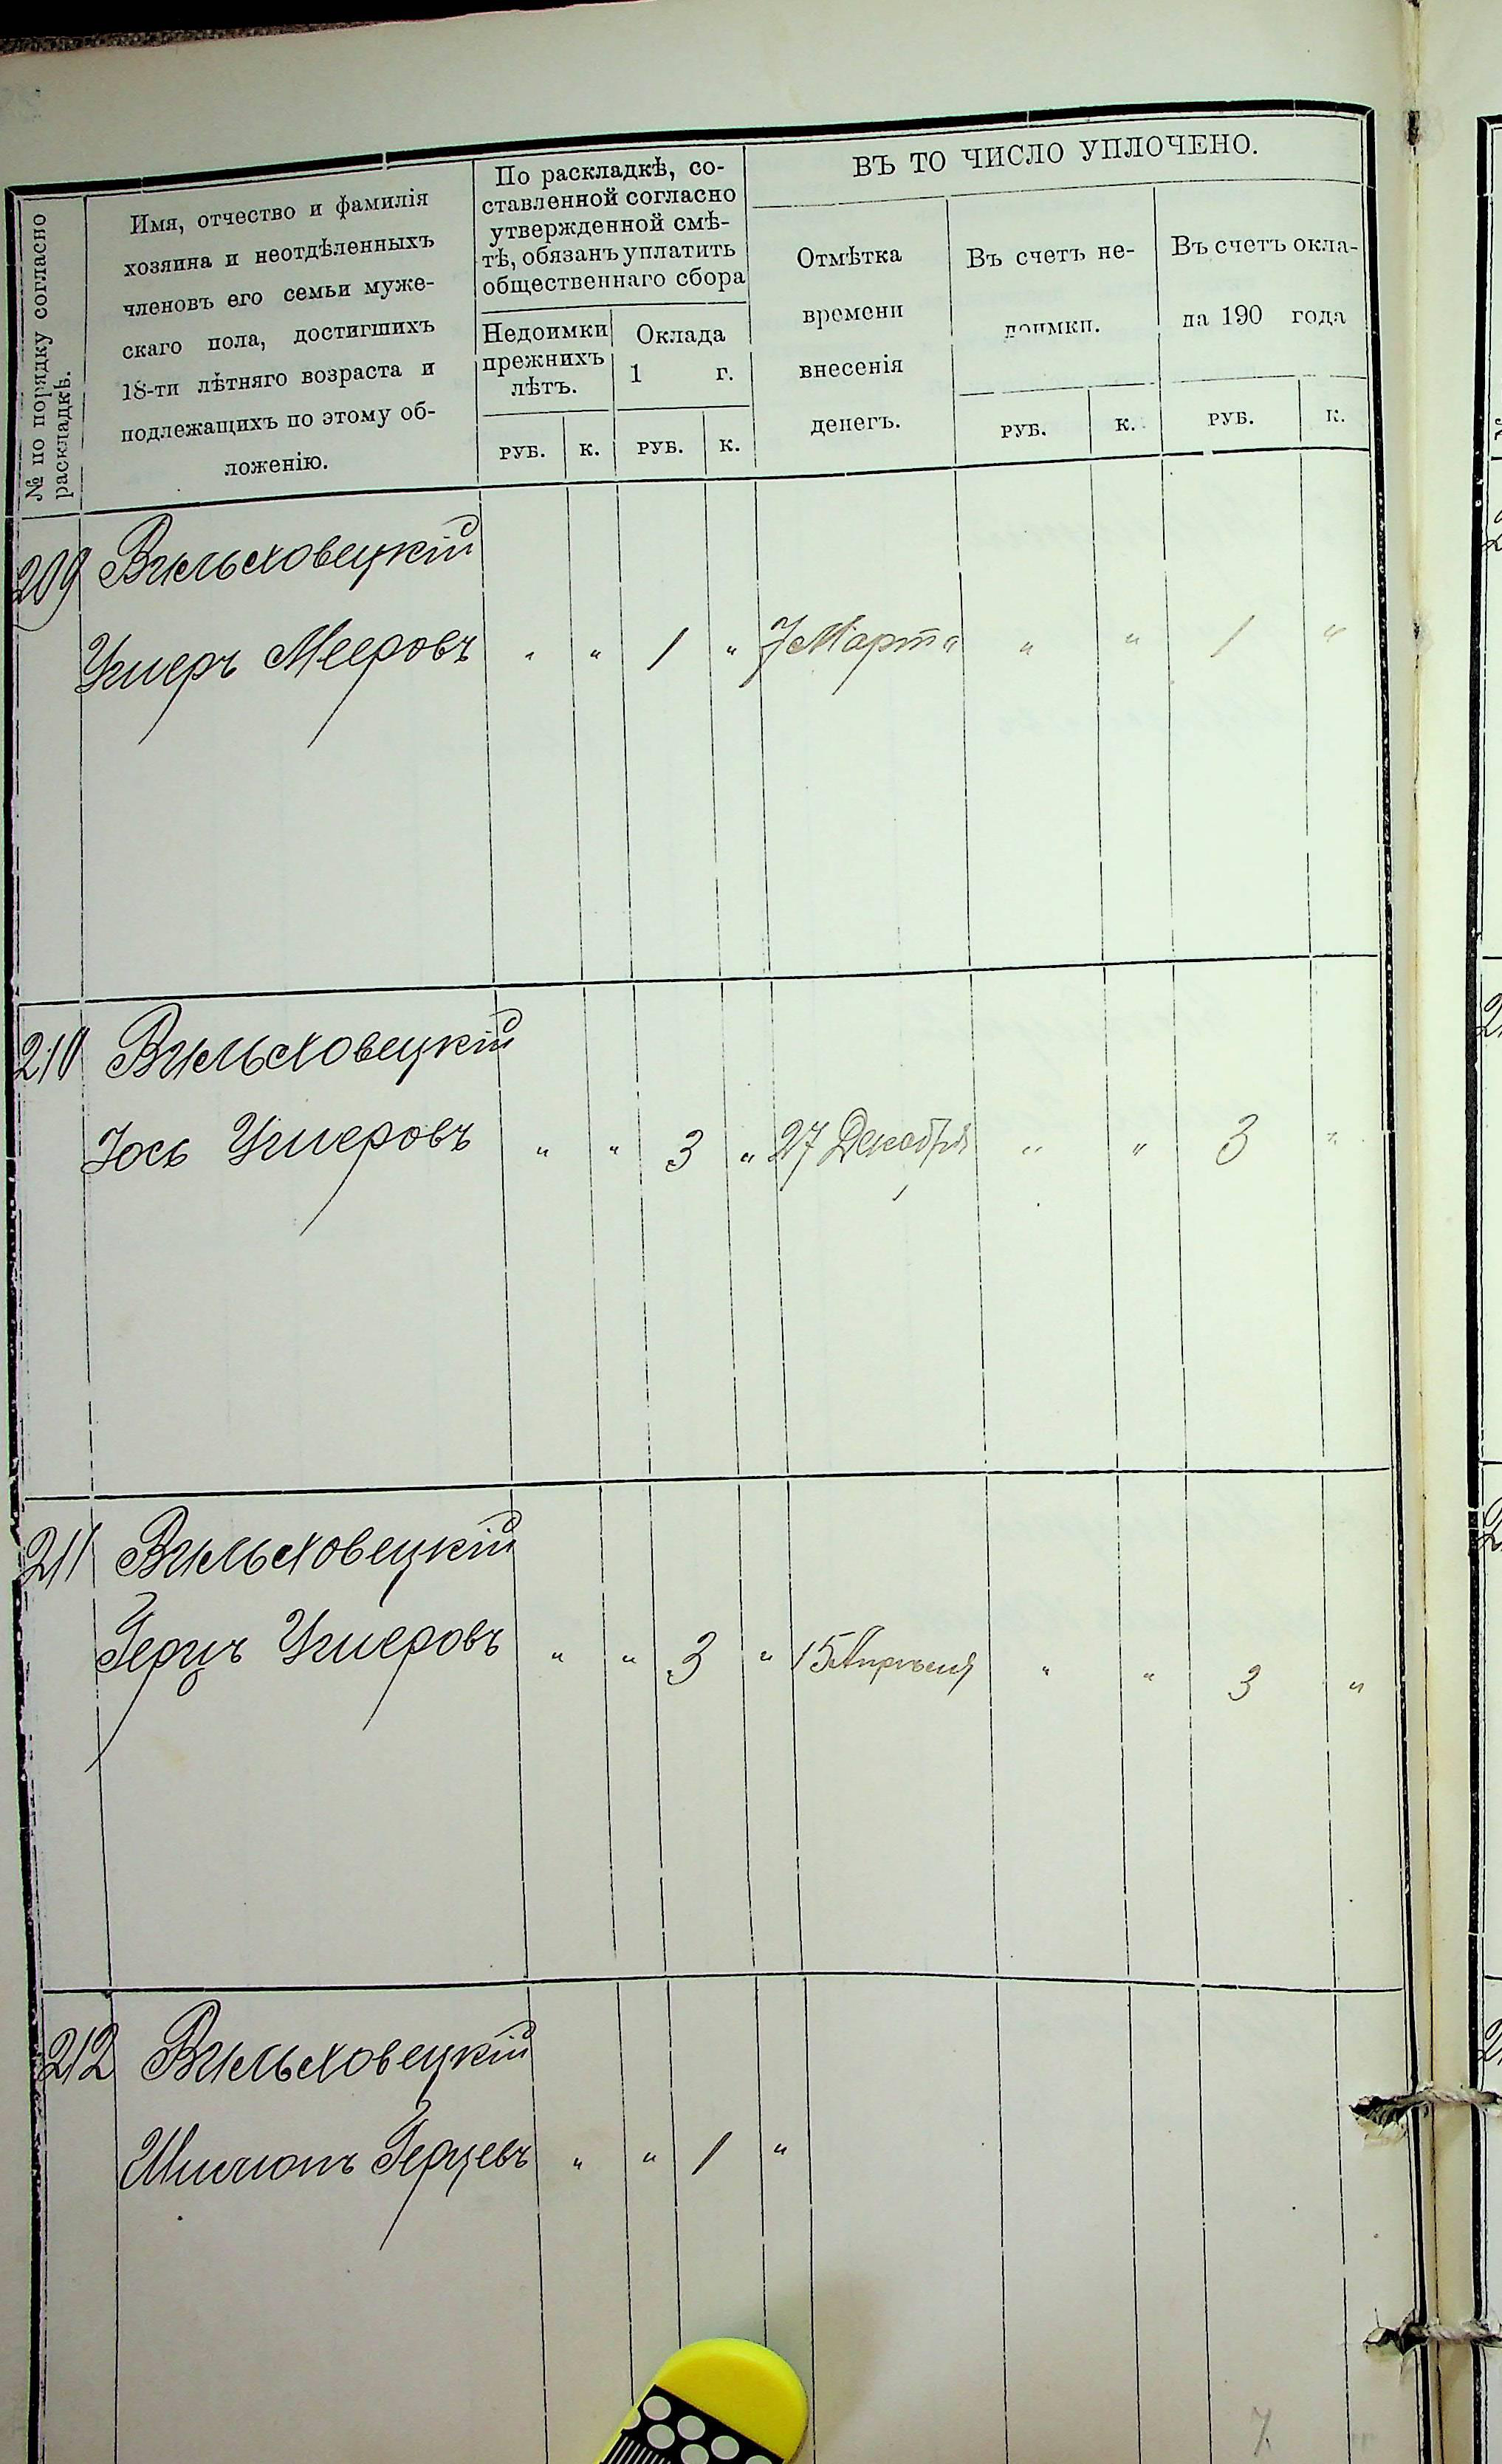 № по порядку согласно
раскладкѣ.
Имя, отчество и фамилія
хозяина и неотдѣленныхъ
членовъ его семьи муже-
скаго пола, достигшихъ
18-ти лѣтняго возраста и
подлежащихъ по этому об-
ложенію.
По раскладкѣ, со-
ставленной согласно
утвержденной смѣ-
тѣ, обязанъ уплатить
общественнаго сбора
Недоимки
прежнихъ
лѣтъ.
Оклада
1 г.
РУБ. К. РУБ. К.
ВЪ ТО ЧИСЛО УПЛОЧЕНО.
Отмѣтка
времени
внесенія
денегъ.
Въ счетъ не-
доимки.
РУБ. К.
Въ счетъ окла-
да 190 года
РУБ. К.
209 Вильховецкій
Ушеръ Мееровъ " " 1 " 7 Марта " " 1 "
210 Вильховецкій
Іось Ушеровъ " " 3 " 27 Декабря " " 3 "
211 Вильховецкій
Герцъ Ушеровъ " " 3 " 15 Апрѣля " " 3 "
212 Вильховецкій
Герцевъ " " 1 "